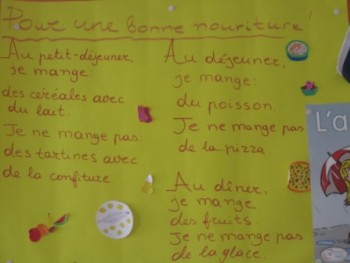 Pour une bonne nouriture!
Au petit-déjeuner,
je mange:
des céréales avec
du lait.
Je ne mange pas:
des tartines avec
de la confiture
Au déjeuner,
je mange:
du poisson.
Je ne mange pas
de la pizza
Au dîner,
je mange
des fruits.
Je ne mange pas
de la glace.
L'a